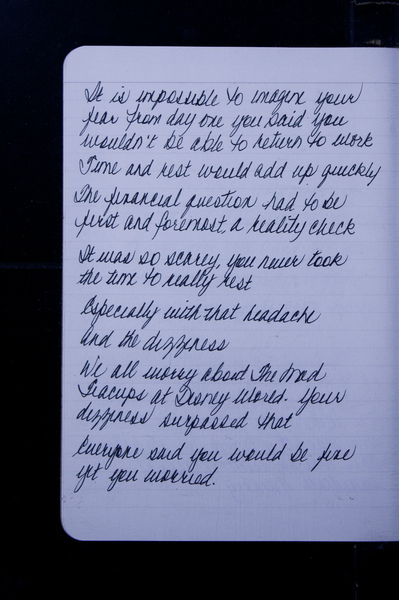 It is impossible to imagine your
fear from day one you said you
wouldn't be able to return to work
Time and rest would add up quickly
The financial question had to be
first and foremost, a reality check
It was so scarey, you never took
the time to really rest
Especially with that headache
and the dizziness
We all worry about The Mad
Teacups at Disney World. Your
dizziness surpassed that
Everyone said you would be fine
yet you worried.